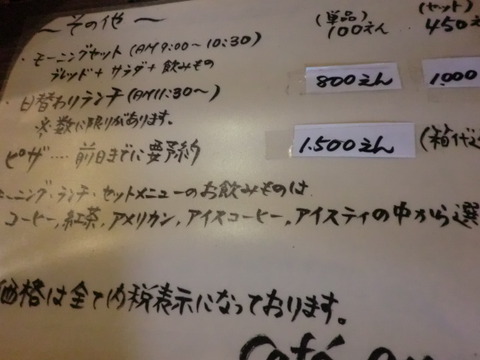 ～その他～ (単品) (セット)
・モーニングセット(AM9:00～10:30) 100えん 450え
ブレッド＋サラダ＋飲みもの
・日替わりランチ(AM11:30～) 800えん 1.000
※数に限りがあります。
ピザ….前日までに要予約 1.500えん (箱代込
モーニング・ランチ・セットメニューのお飲みものは
コーヒー,紅茶,アメリカン,アイスコーヒー,アイスティの中から選
価格は全て内税表示になっております。
Café